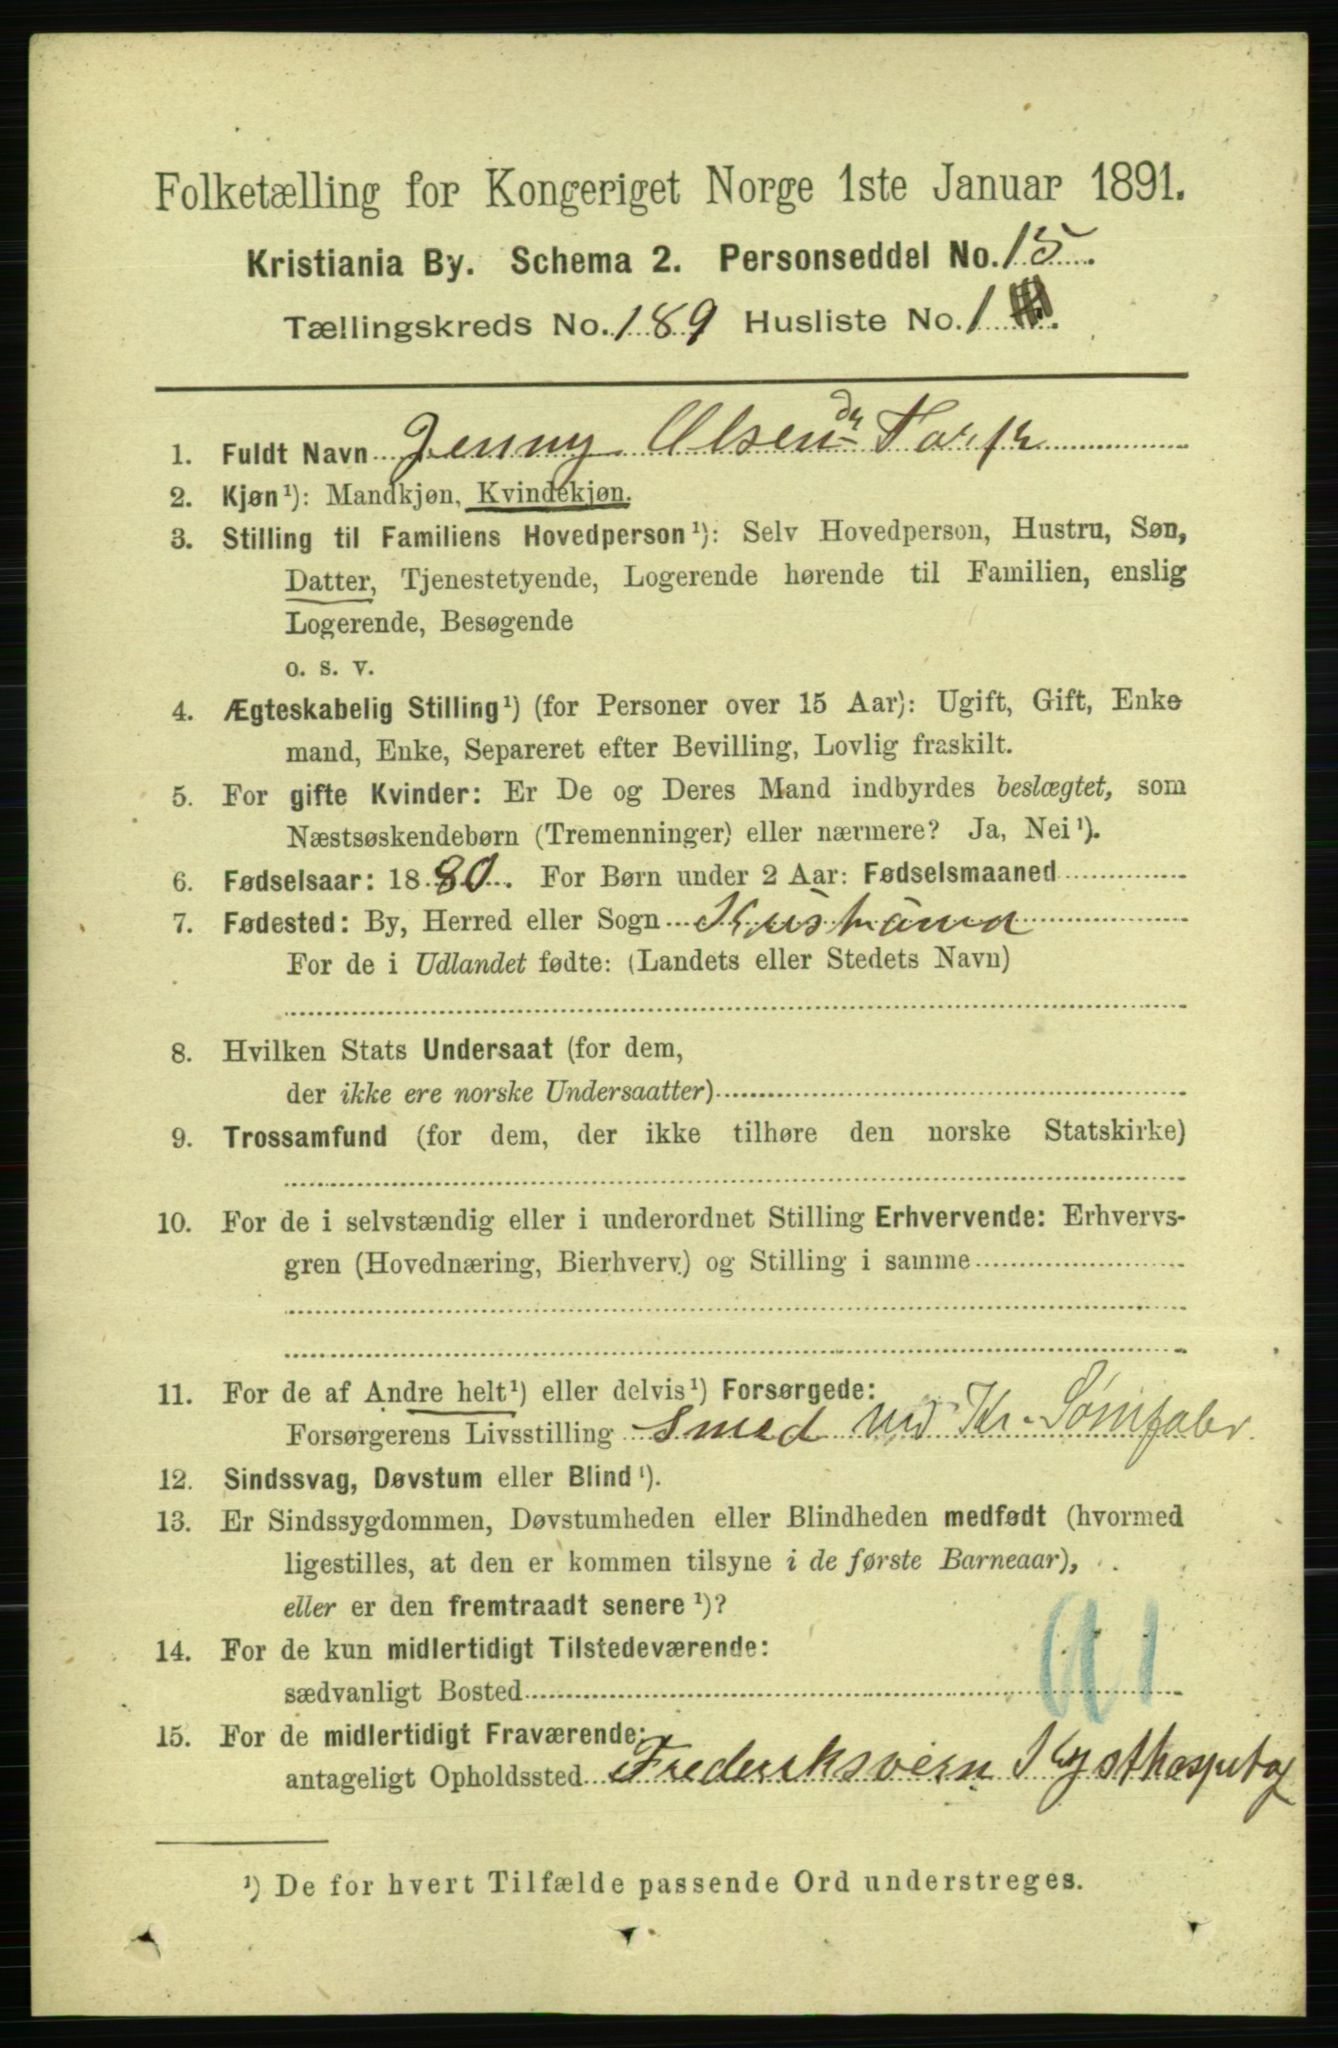 Folketælling for Kongeriget Norge 1ste Januar 1891.
Kristiania By. Schema 2. Personseddel No. 15.
Tællingskreds No. 189 Husliste No. 1
1. Fuldt Navn Jenny Olsen
2. Kjøn¹): Mandkjøn, Kvindekjøn.
3. Stilling til Familiens Hovedperson¹): Selv Hovedperson, Hustru, Søn,
Datter, Tjenestetyende, Logerende hørende til Familien, enslig
Logerende, Besøgende
o. s. v.
4. Ægteskabelig Stilling¹) (for Personer over 15 Aar): Ugift, Gift, Enke
mand, Enke, Separeret efter Bevilling, Lovlig fraskilt.
5. For gifte Kvinder: Er De og Deres Mand indbyrdes beslægtet, som
Næstsøskendebørn (Tremenninger) eller nærmere? Ja, Nei¹).
6. Fødselsaar: 1880. For Børn under 2 Aar: Fødselsmaaned
7. Fødested: By, Herred eller Sogn
For de i Udlandet fødte: (Landets eller Stedets Navn)
8. Hvilken Stats Undersaat (for dem,
der ikke ere norske Undersaatter)
9. Trossamfund (for dem, der ikke tilhøre den norske Statskirke)
10. For de i selvstændig eller i underordnet Stilling Erhvervende: Erhvervs-
gren (Hovednæring, Bierhverv) og Stilling i samme
11. For de af Andre helt¹) eller delvis¹) Forsørgede:
Forsørgerens Livsstilling Smed ved Kr. Sømfabr.
12. Sindssvag, Døvstum eller Blind¹).
13. Er Sindssygdommen, Døvstumheden eller Blindheden medfødt (hvormed
ligestilles, at den er kommen tilsyne i de første Barneaar),
eller er den fremtraadt senere¹)?
14. For de kun midlertidigt Tilstedeværende:
sædvanligt Bosted
15. For de midlertidigt Fraværende:
antageligt Opholdssted Frederiksvern Kysthospital
¹) De for hvert Tilfælde passende Ord understreges.